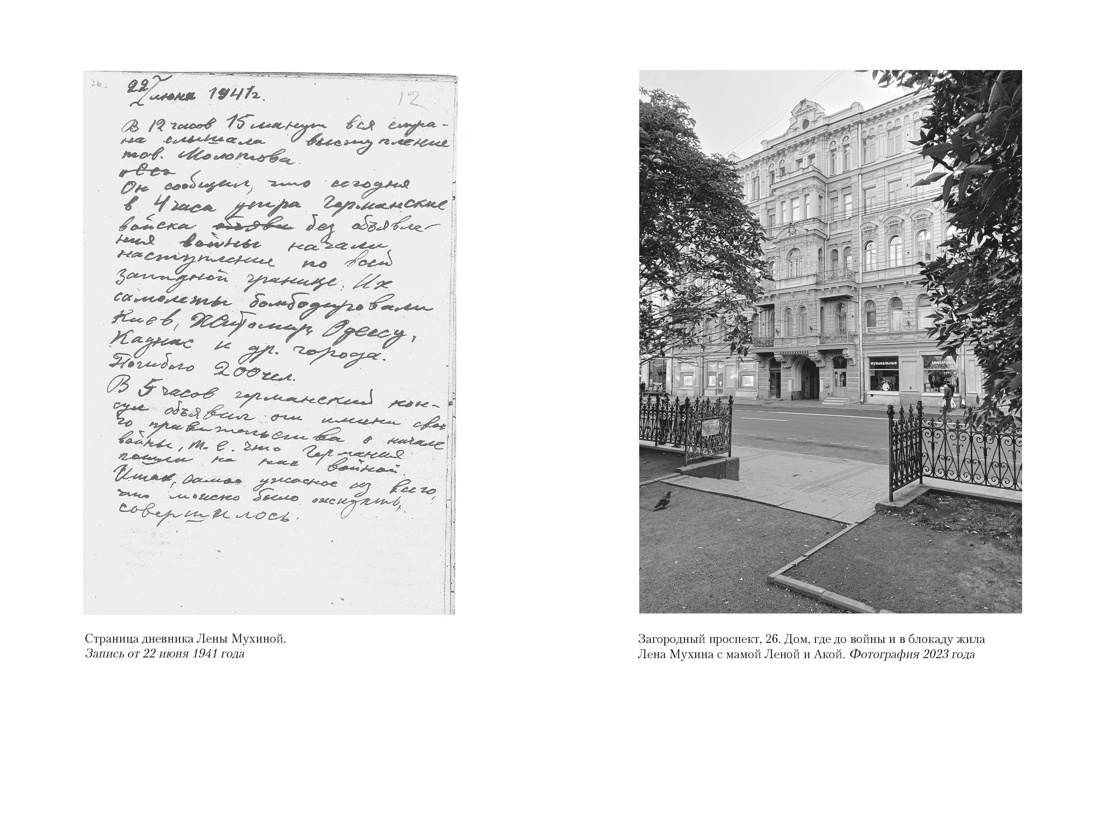 22 июня 1941 г.
12
В 12 часов 15 минут вся стра-
на слышала выступление
тов. Молотова.
Он сообщил, что сегодня
в 4 часа утра германские
войска без объявле-
ния войны начали
наступление по всей
западной границе. Их
самолеты бомбодировали
Киев, Житомир, Одессу,
Каунас и др. города.
Погибло 200 чел.
В 5 часов германский кон-
сул объявил от имени свое
го правительства о начале
войны, т. е. что Германия
пошла на нас войной.
Итак, самое ужасное из всего,
что можно было ожидать,
совершилось.
Страница дневника Лены Мухиной.
Запись от 22 июня 1941 года
МУЗЫКАЛЬНЫЕ
Загородный проспект, 26. Дом, где до войны и в блокаду жила
Лена Мухина с мамой Леной и Акой. Фотография 2023 года